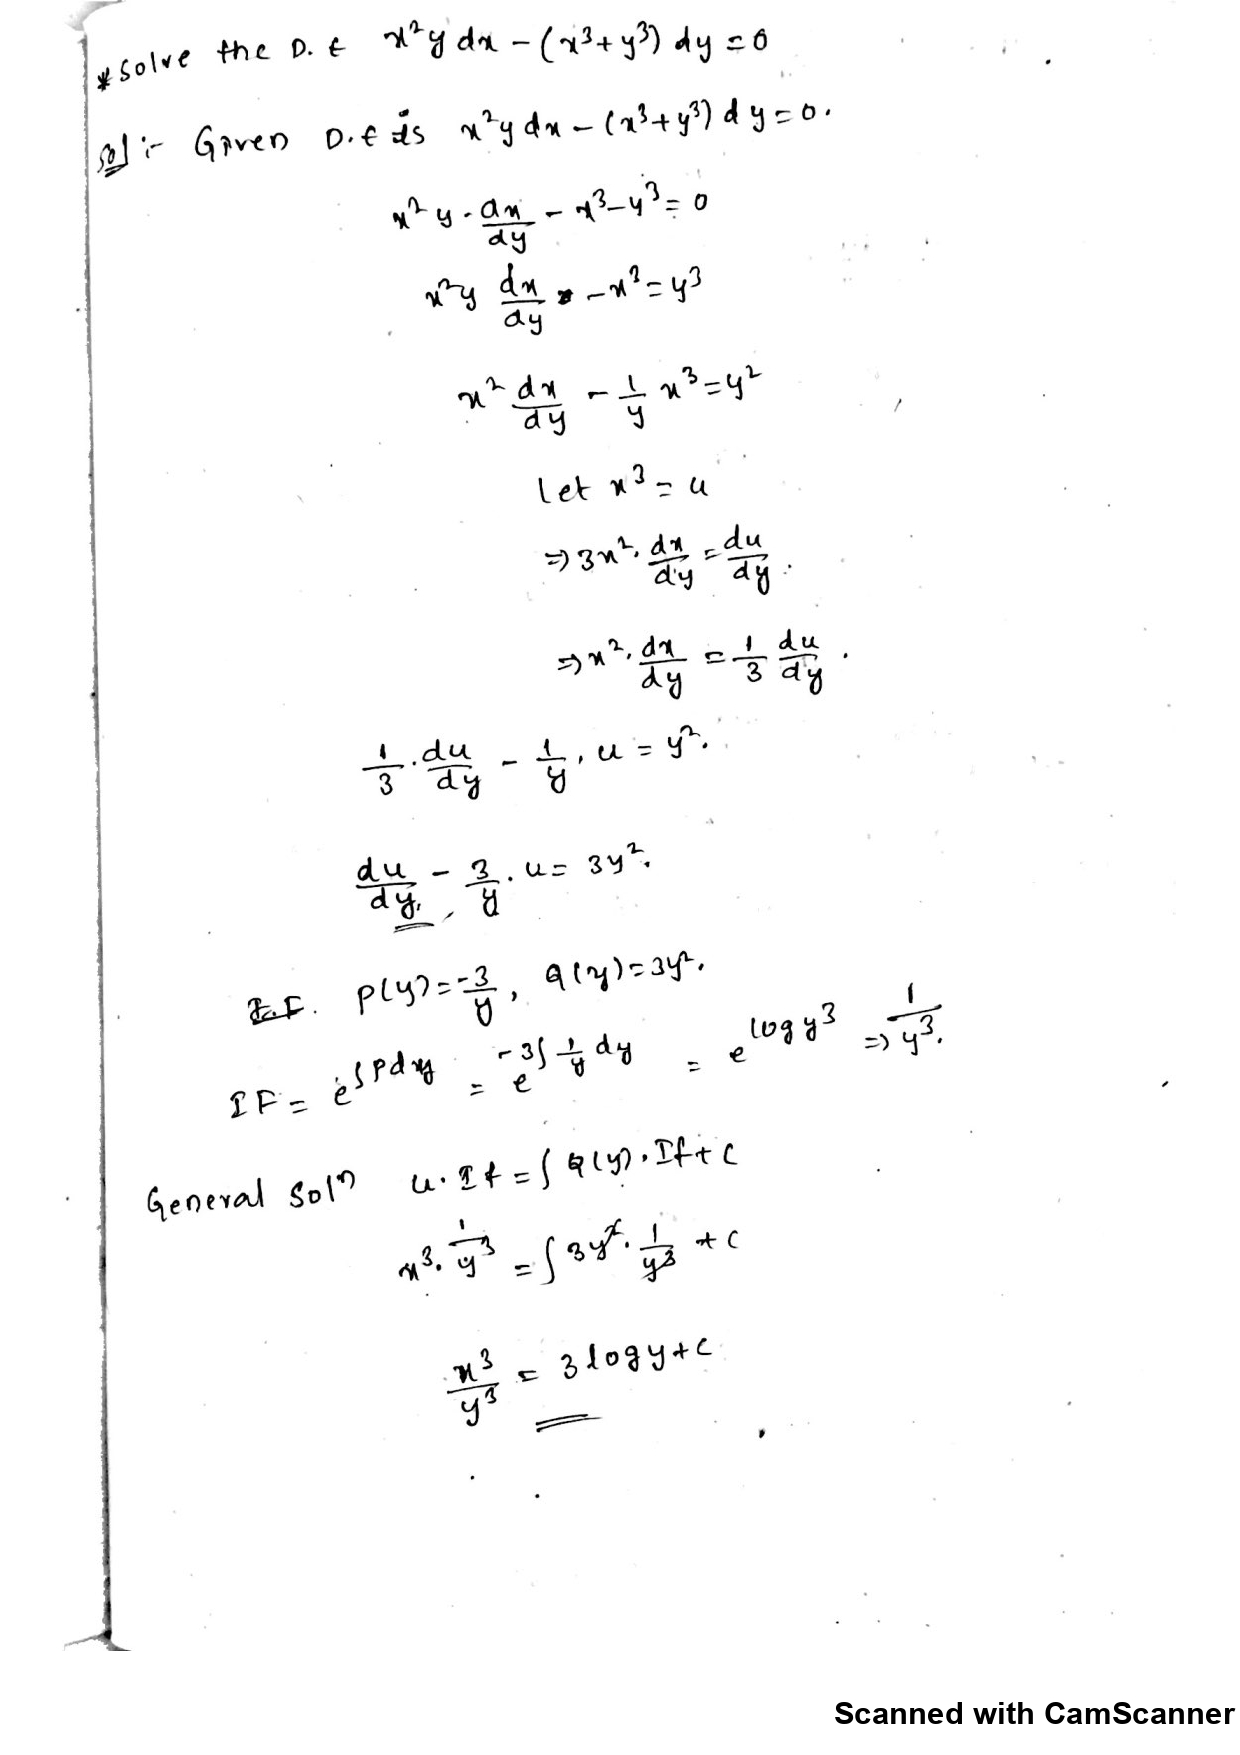 *Solve the D.E x²y dx - (x³+y³) dy = 0
Sol :- Given D.E is x²y dx - (x³+y³) dy = 0.
x² y · dx/dy - x³ - y³ = 0
x²y dx/dy - x³ = y³
x² dx/dy - 1/y x³ = y²
Let x³ = u
⇒ 3x² · dx/dy = du/dy .
⇒ x² · dx/dy = 1/3 du/dy .
1/3 · du/dy - 1/y · u = y² .
du/dy - 3/y · u = 3y² .
P(y) = -3/y , Q(y) = 3y² .
IF = e^∫Pdy = e^-3∫1/y dy = e^log y³ ⇒ 1/y³ .
General Solⁿ u · If = ∫ Q(y) · If + C
x³ · 1/y³ = ∫ 3y² · 1/y³ + C
x³/y³ = 3 log y + C
Scanned with CamScanner